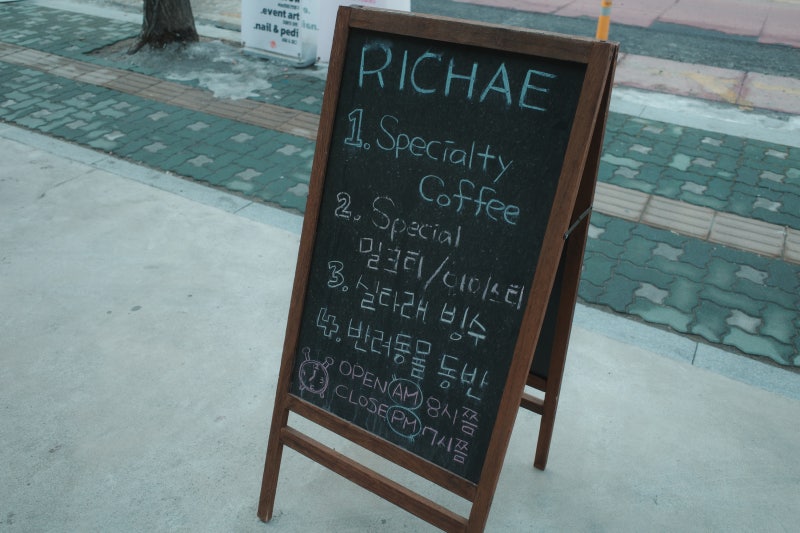 .event art
.nail & pedi
RICHAE
1. Specialty
Coffee
2. Special
밀크티/아이스티
3. 실타래 빙수
4. 반려동물 동반
OPEN AM 8시쯤
CLOSE PM 7시쯤